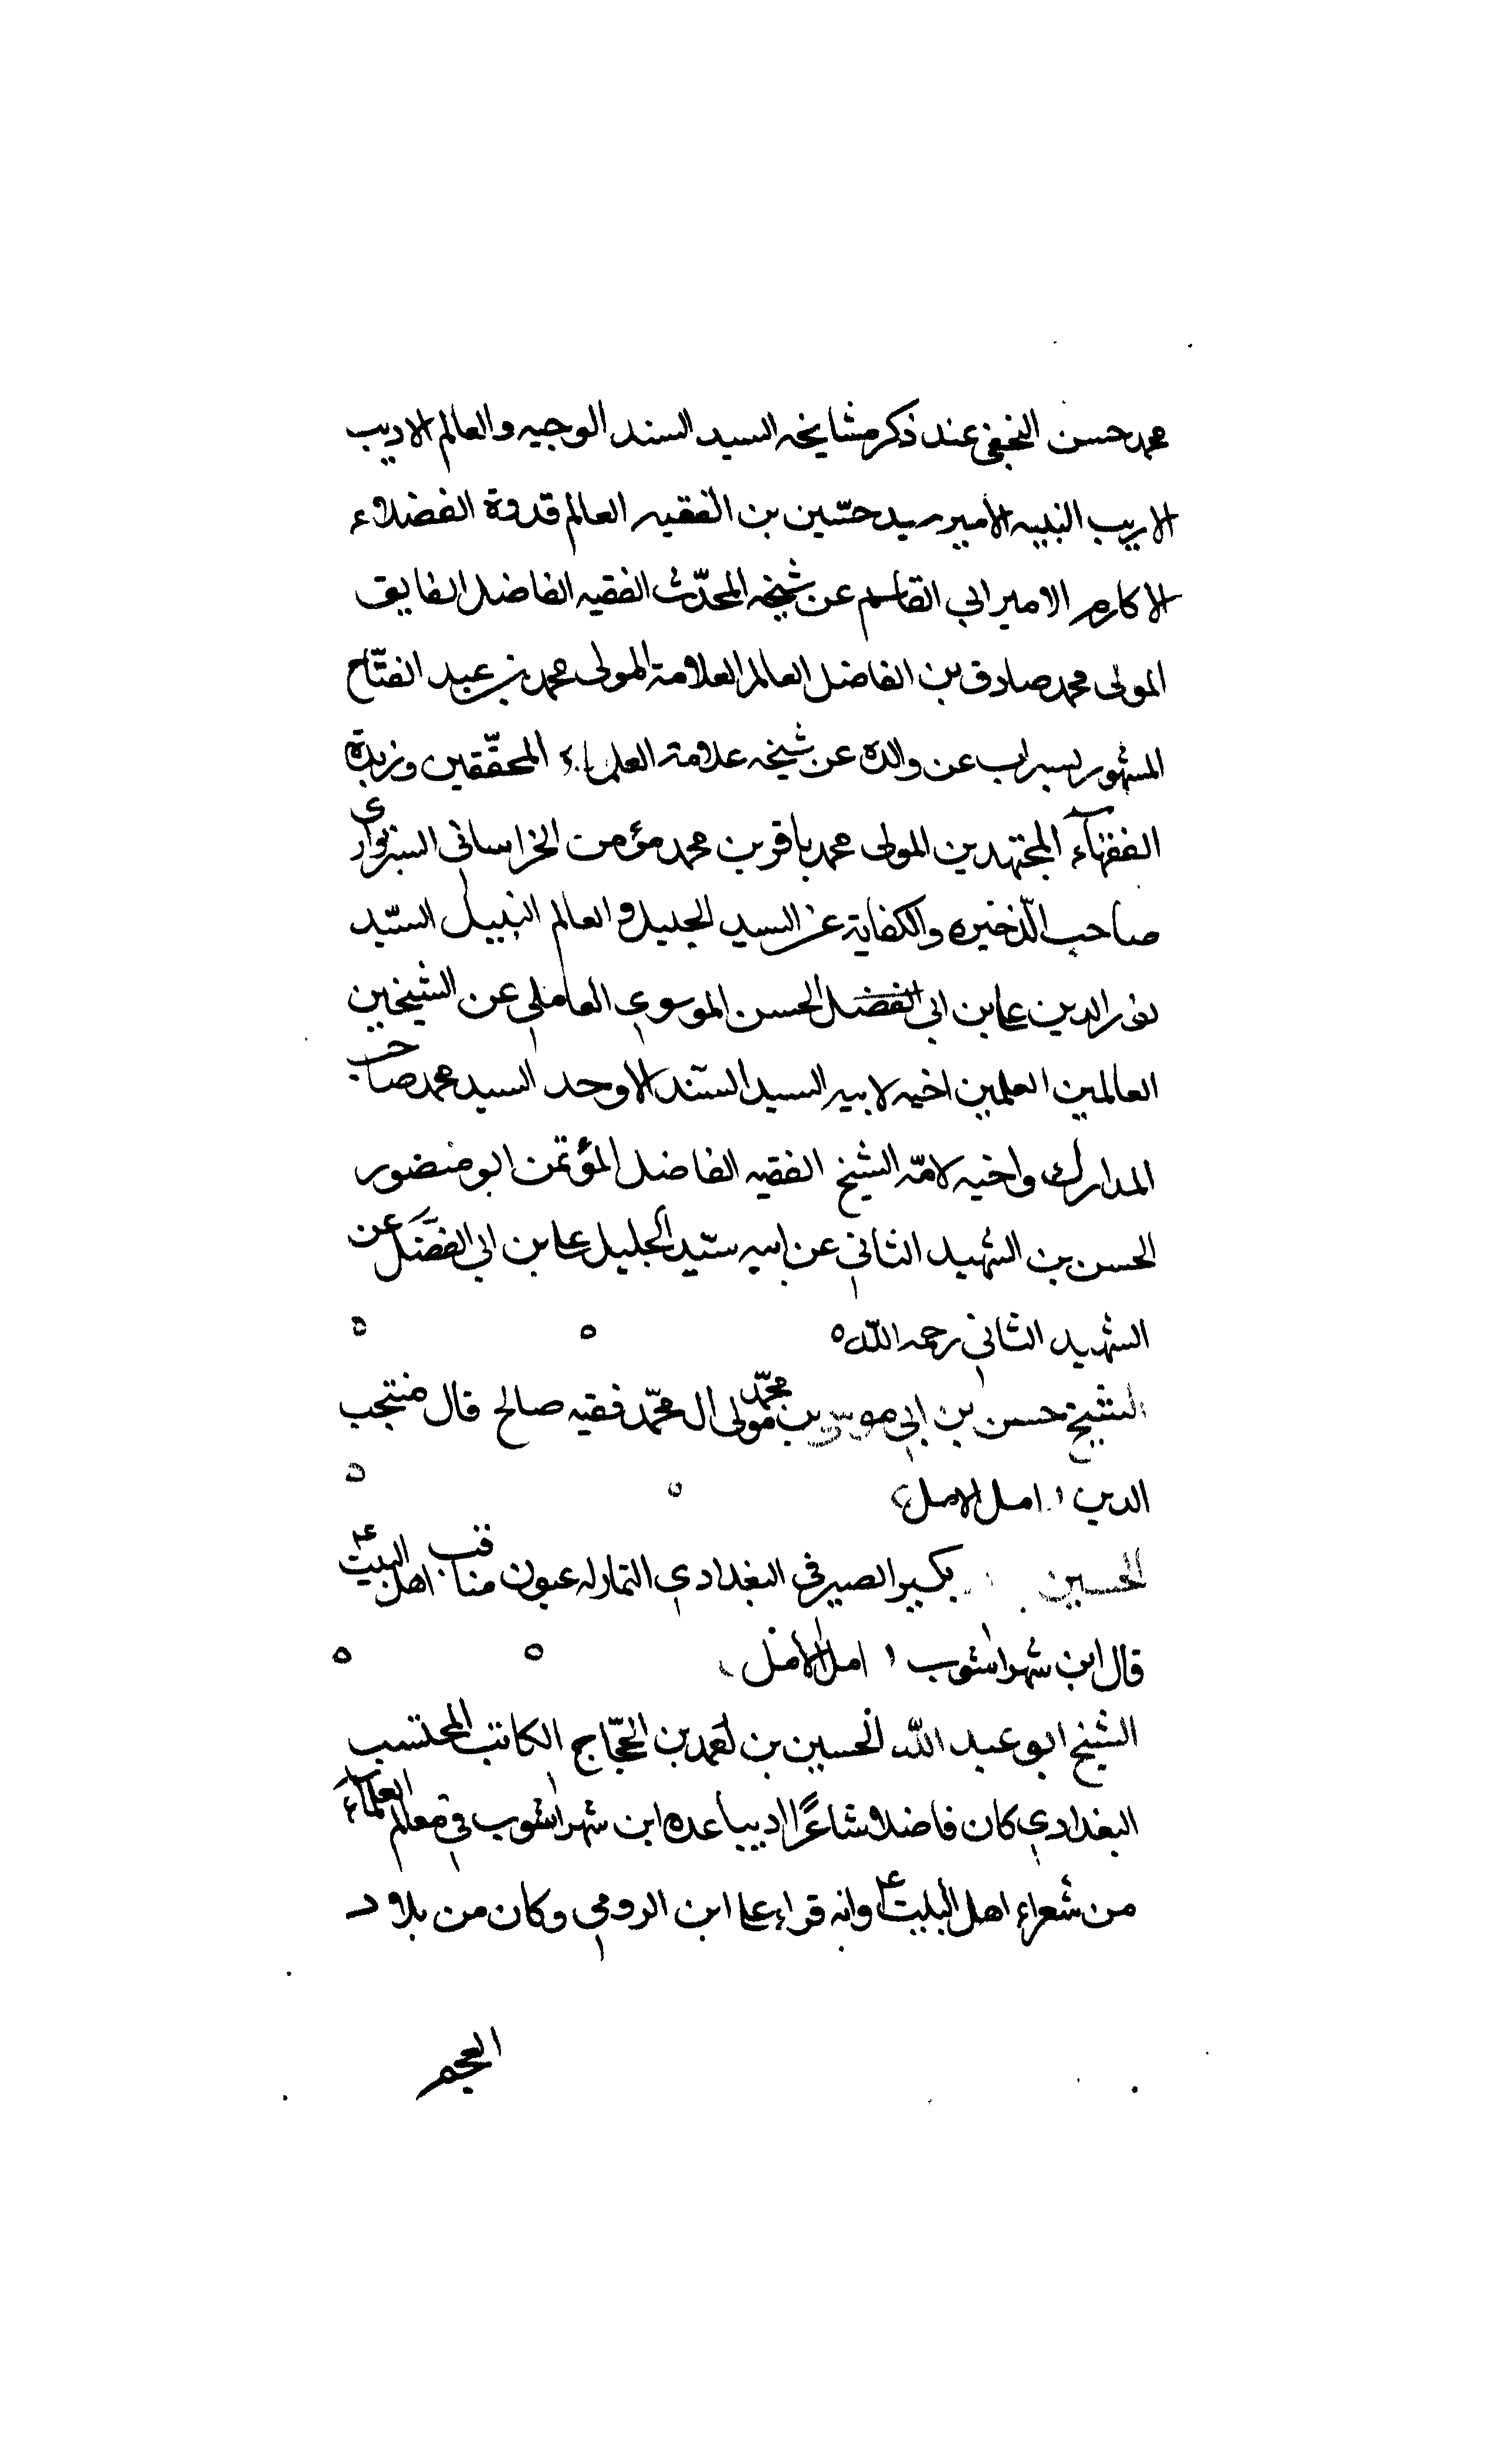 محمد حسن النجفي عند ذكر مشايخه السيد السند الوجيه والعالم الاديب
الاريب النبيه الأمير سيد حسّين بن الفقيه العالم قدوة الفضلاء
الاكارم الامير ابي القاسم عن شيخه المحدّث الفقيه الفاضل الفايق
المولى محمد صادق بن الفاضل العالم العلامة المولى محمد بن عبد الفتّاح
المشهور بسراب عن والده عن شيخه علامة العلماء المحقّقين وزبدة
الفقهآء المجتهدين المولى محمد باقر بن محمد مؤمن الخراساني السبزواري
صاحب الذّخيره والكفاية عن السيد الجليل والعالم النبيل السّيد
نور الدين علي بن ابي الفضل الحسن الموسوي العاملي عن الشيخين
العالمين العلمين اخيه لابيه السيد السّند الاوحد السيد محمد صاحب
المدارك واخيه لامّه الشيخ الفقيه الفاضل المؤتمن ابو منصور
الحسن بن الشهيد الثاني عن ابيه سيّد الجليل علي بن ابي الفضل عن
الشهيد الثاني رحمه اللّه ه ه ه
الشيخ حسن بن ابي موسى بن محمّد مولى ال محمّد فقيه صالح قال منتجب
الدين امل الامل ه ه
الحسين بكير الصيرفي البغدادي التمار له عيون مناقب اهل البيت ع
قال ابن شهراشوب امل الامل ه ه
الشيخ ابو عبد اللّه الحسين بن احمد بن الحجّاج الكاتب المحتسب
البغدادي كان فاضلا شاعرًا اديبا عده ابن شهراشوب في معالم العلمآء
من شعراء اهل البيت ع وانه قراء على ابن الرومي وكان من بلاد
العجم